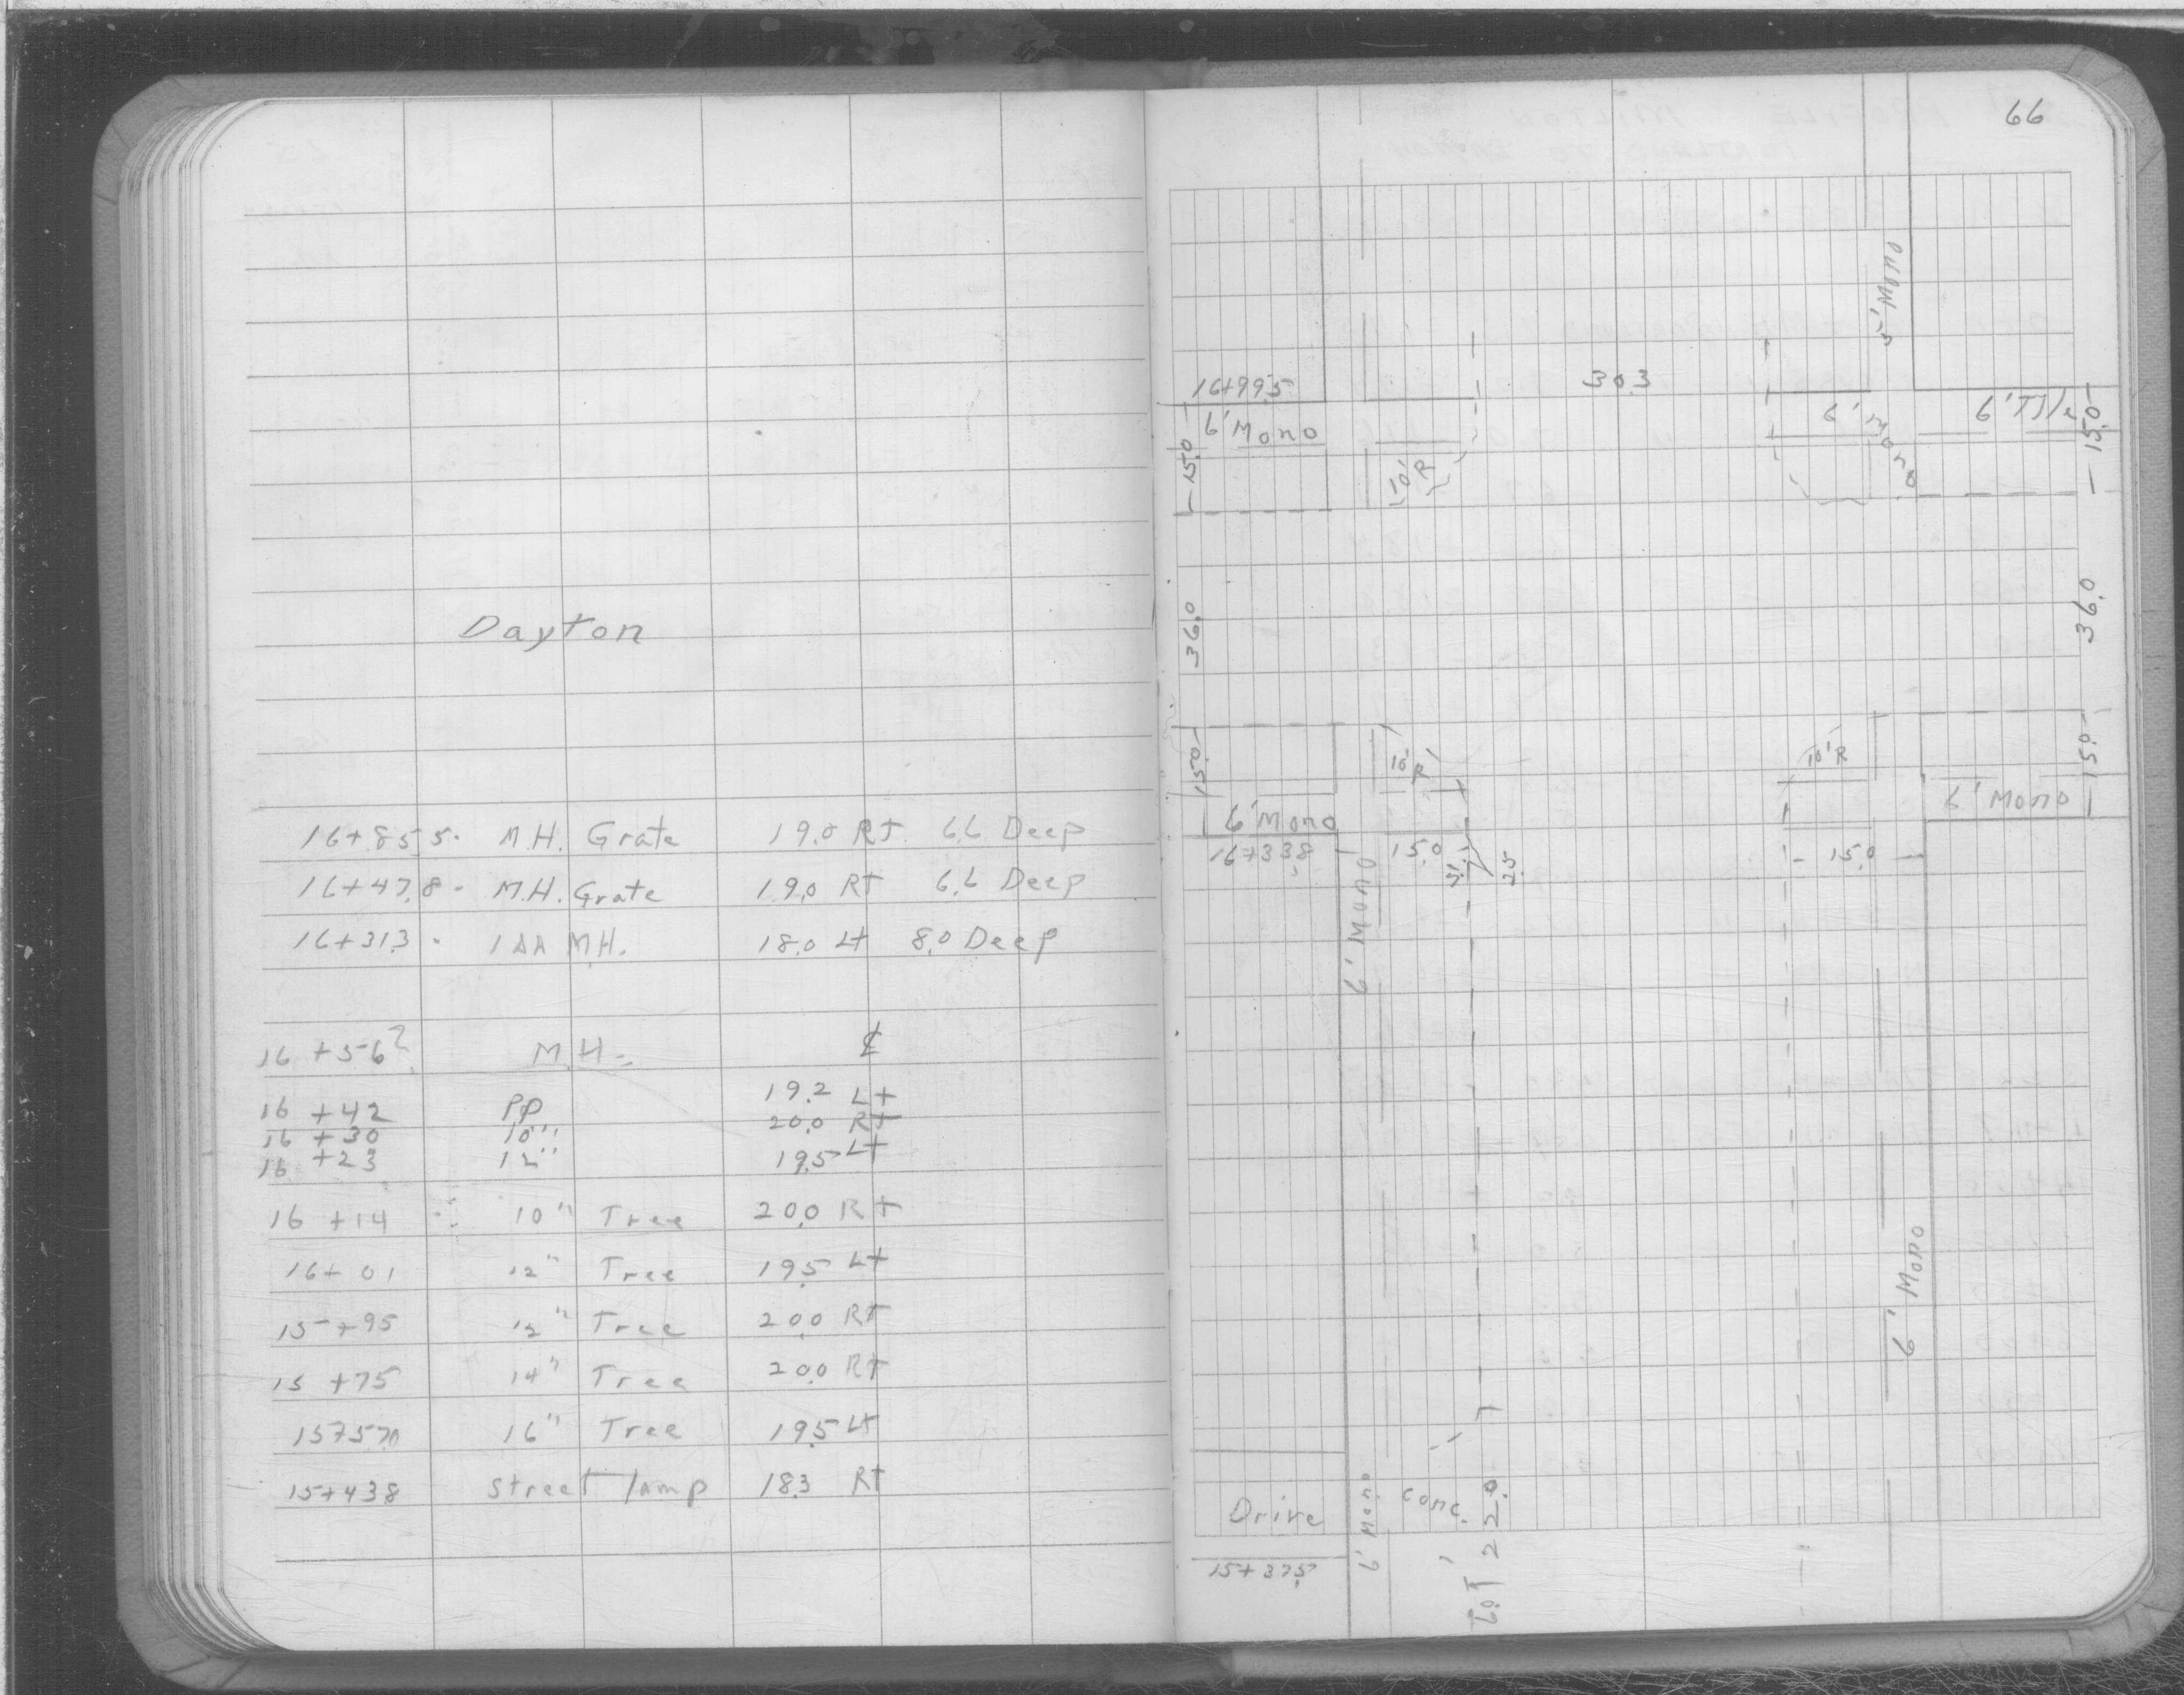 66
Dayton
16+85.5 - M.H. Grate 19.0 RT. 6.6 Deep
16+47.8 - M.H. Grate 19.0 RT 6.6 Deep
16+31.3 - M.H. 18.0 Lt 8.0 Deep
16 +56.2 M.H. ℄
16 +42 PP 19.2 Lt
16 +30 10" 20.0 RT
16 +23 12" 19.5 Lt
16 +14 10" Tree 20.0 Rt
16+01 12" Tree 19.5 Lt
15+95 12" Tree 20.0 RT
15 +75 14" Tree 20.0 RT
15+57.0 16" Tree 19.5 Lt
15+43.8 Street lamp 18.3 RT
5' Mono
16+99.5 30.3
6' Mono 6' Mono 6' Tile
15.0 10' R 15.0
36.0 36.0
15.0 10' R 10' R 15.0
6' Mono 6' Mono
16+33.8 15.0 .5 2.5 15.0
6' Mono
6' Mono
Drive 6' Mono Conc. 22.0
15+37.5